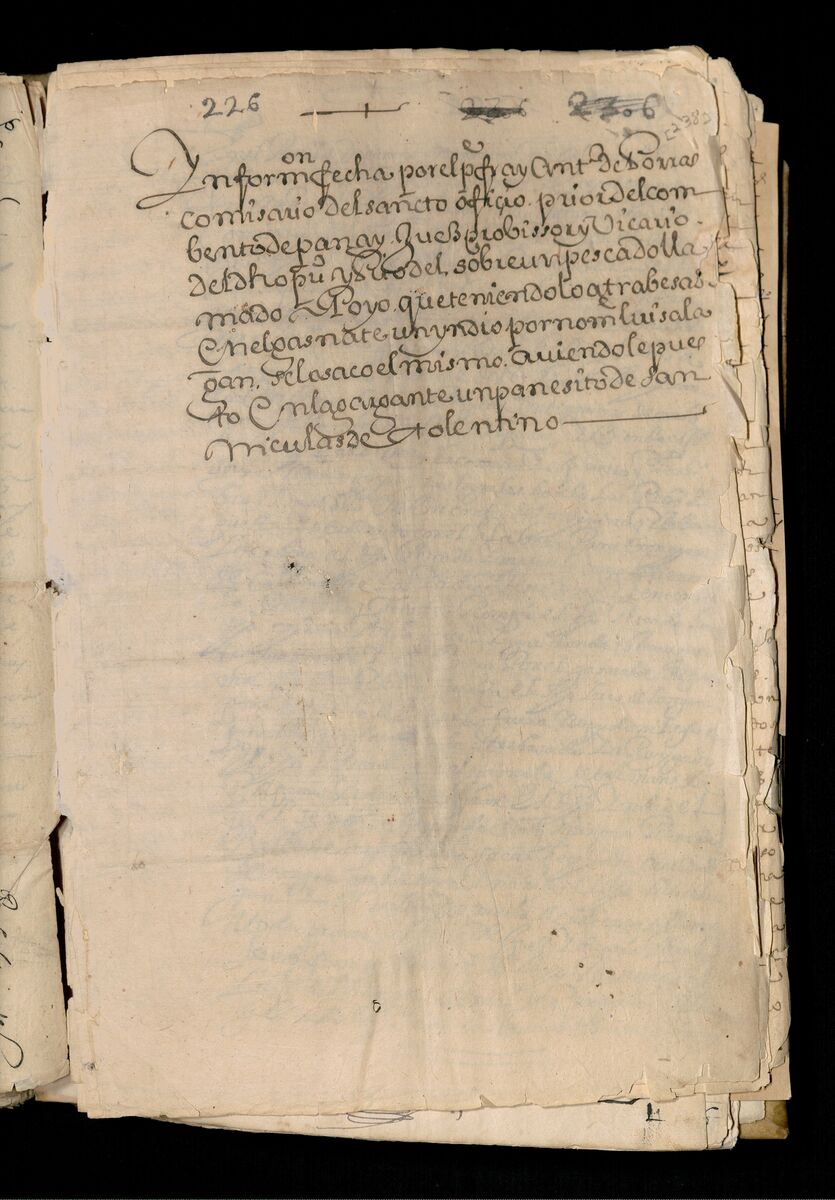 226 236 2306
Ynformon fecha por el pe fray Antº de Porras
comisario del sancto officio. prior del com
bento de panay. Juez probissor y Vicario
del dho puº y dito del, sobre un pescado lla
mado Poyo. que teniendolo atrabesa
En el gasnate un yndio por nome luis ala
gan, se lo saco el mismo. aviendole pues
to En la gargante un panesito de San
Niculas de tolentino